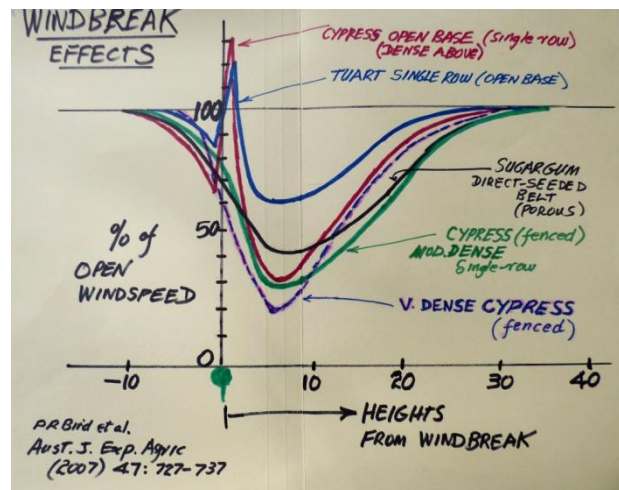 WINDBREAK
EFFECTS
CYPRESS OPEN BASE (single-row)
(DENSE ABOVE)
TUART SINGLE ROW (OPEN BASE)
100
SUGARGUM
DIRECT-SEEDED
BELT
(POROUS)
50
% of
OPEN
WINDSPEED
CYPRESS (fenced)
MOD. DENSE
Single-row
V. DENSE CYPRESS
(fenced)
0
-10
10
20
30
40
HEIGHTS
FROM WINDBREAK
P R Bird et al.
Aust. J. Exp. Agric
(2007) 47: 727-737